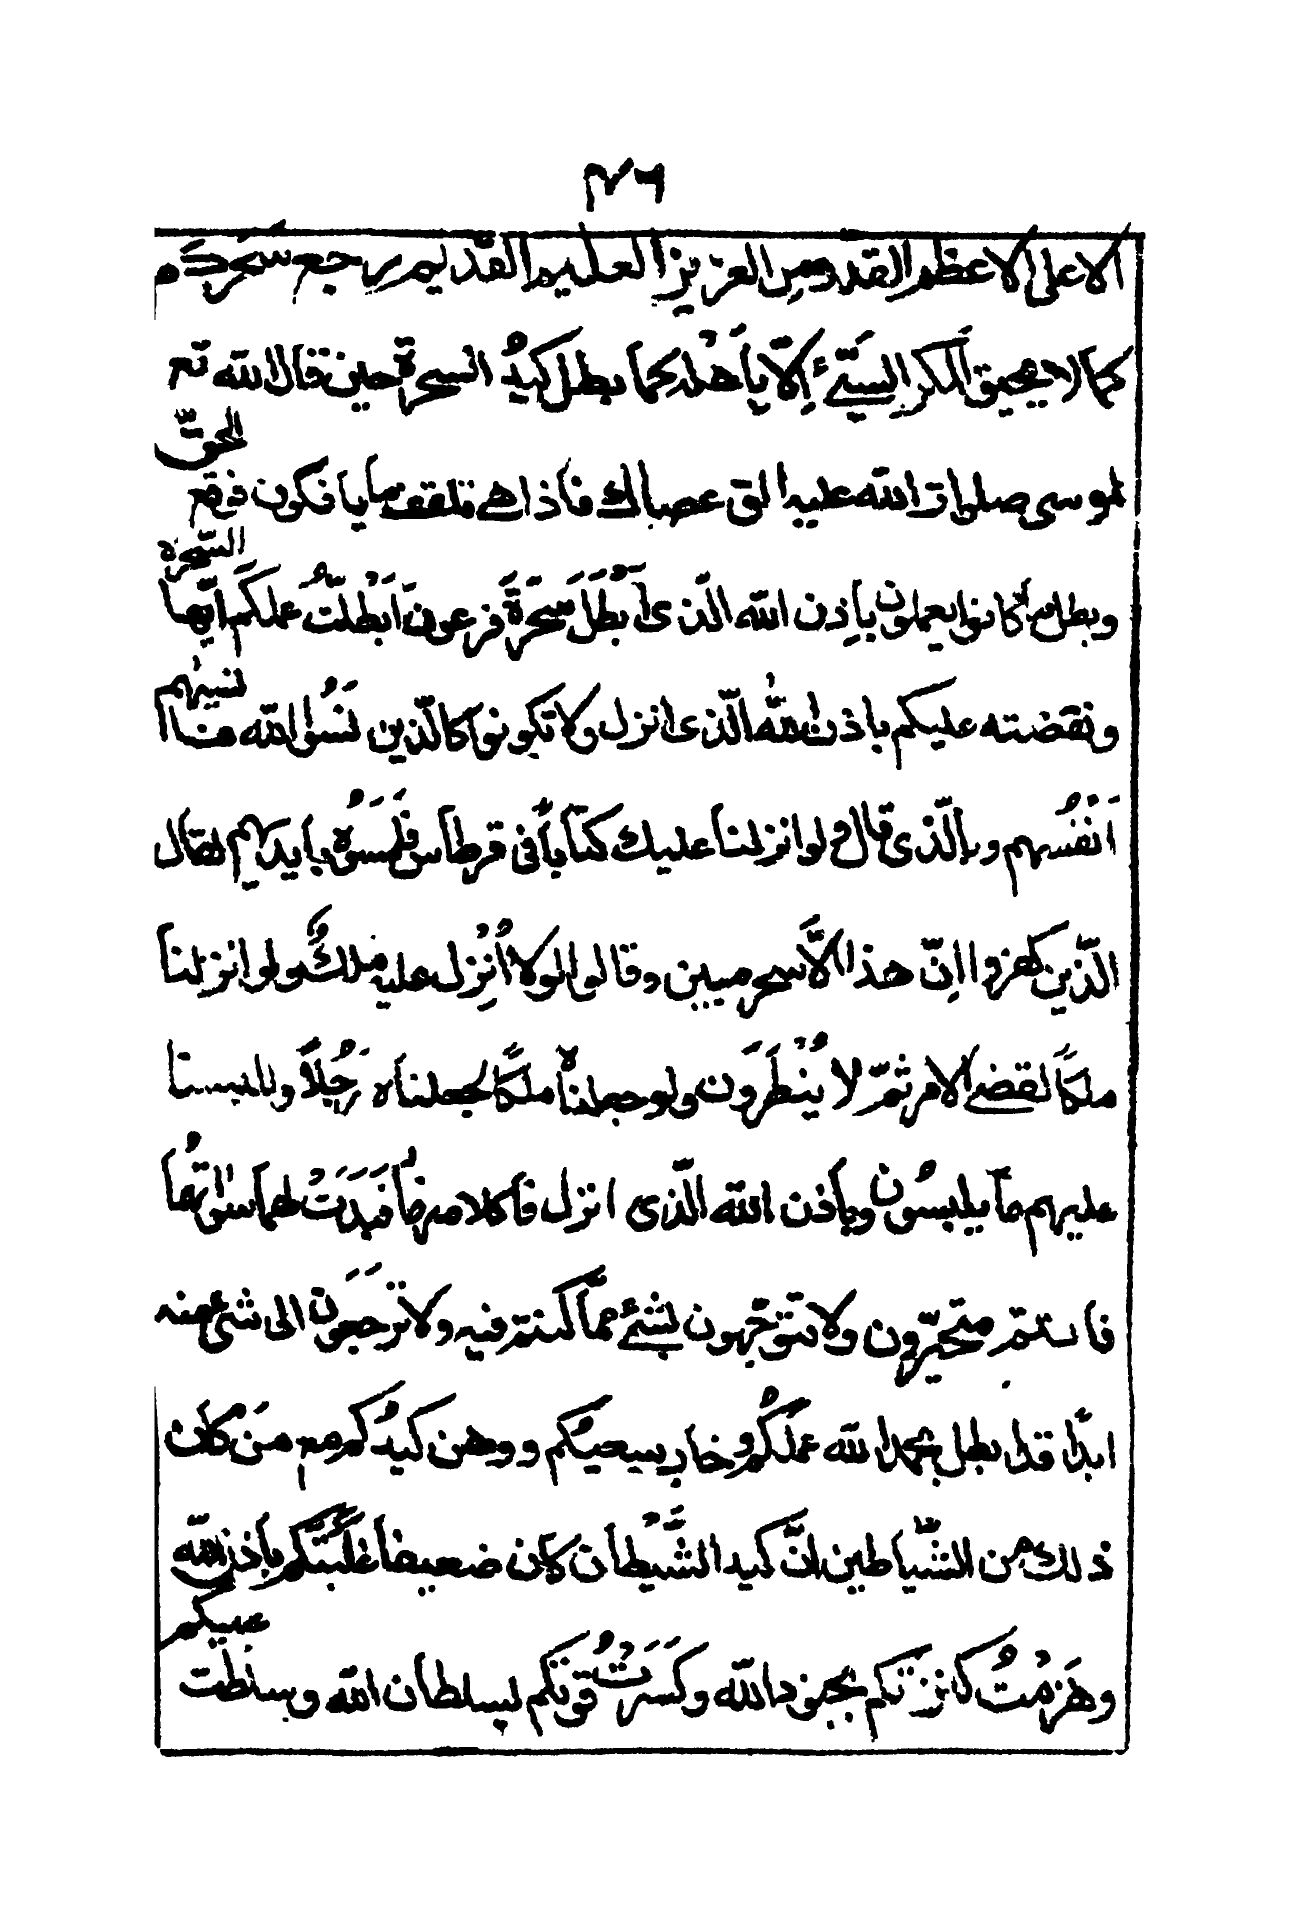 ٢٧٦
الاعلى الاعظم القدوس العزيز العليم القديم رجع سحركم
كما لا يحيق المكر السيّئ إلّا بأهله كما بطل كيدُ السحرة حين قال الله تع
لموسى صلوات الله عليه الق عصاك فاذا هي تلقف ما يأفكون فوقع الحقّ
وبطل ما كانوا يعملون بإذن الله الّذي أبْطَلَ سَحَرَةَ فرعون أبْطَلْتُ عملكم أيّها السّحرة
ونقضته عليكم باذن الله الّذي انزل ولا تكونوا كالّذين نَسُوا الله فأنساهم
انفُسهم وبالّذي قال ولو انزلنا عليك كتاباً في قرطاس فلَمَسُوه بأيديهم لقال
الّذين كفروا انّ هذا الّا سحر مبين وقالوا لولا أُنْزِل عليه ملكٌ ولو انزلنا
ملكاً لقضي الامر ثمّ لا يُنْظَرُون ولو جعلناه ملكاً لجعلناه رَجُلاً وللبسنا
عليهم ما يلبسُون وبأذن الله الّذي انزل فأكلا منها فبَدَتْ لهما سوآتهُما
فانتم متحيّرون ولا تتوجّهون بشئ عمّا كنتم فيه ولا ترجعون الى شئ منه
ابداً قد بطل بحمد الله عملُكم وخاب سعيُكم ووهن كيدُكم مع مَن كان
ذلك من الشّياطين انّ كيد الشّيطان كان ضعيفا غلَبْتُكم بأذن الله
وهَزمْتُ كثرَتكم بجنود الله وكَسَرتُ قوتكم بسلطان الله وسلطت عليكم